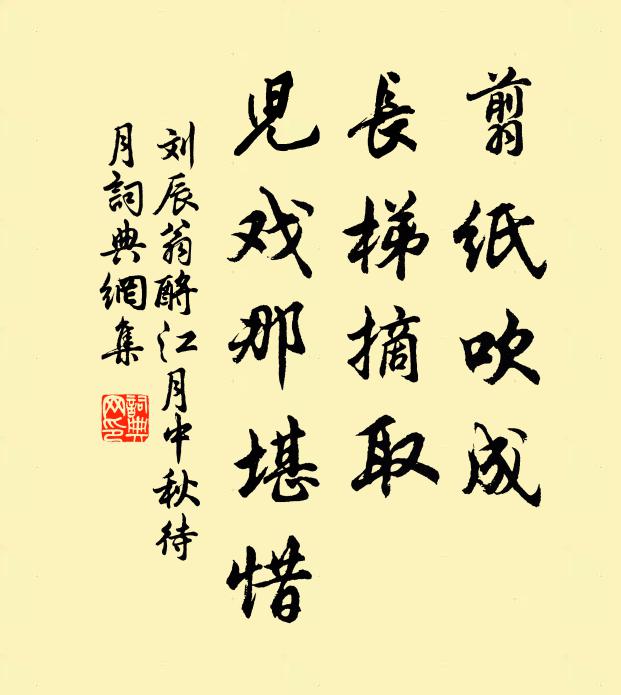 剪紙吹成
長梯摘取
兒戏那堪惜
刘辰翁酹江月中秋待
月詞典網集
詞典
网印